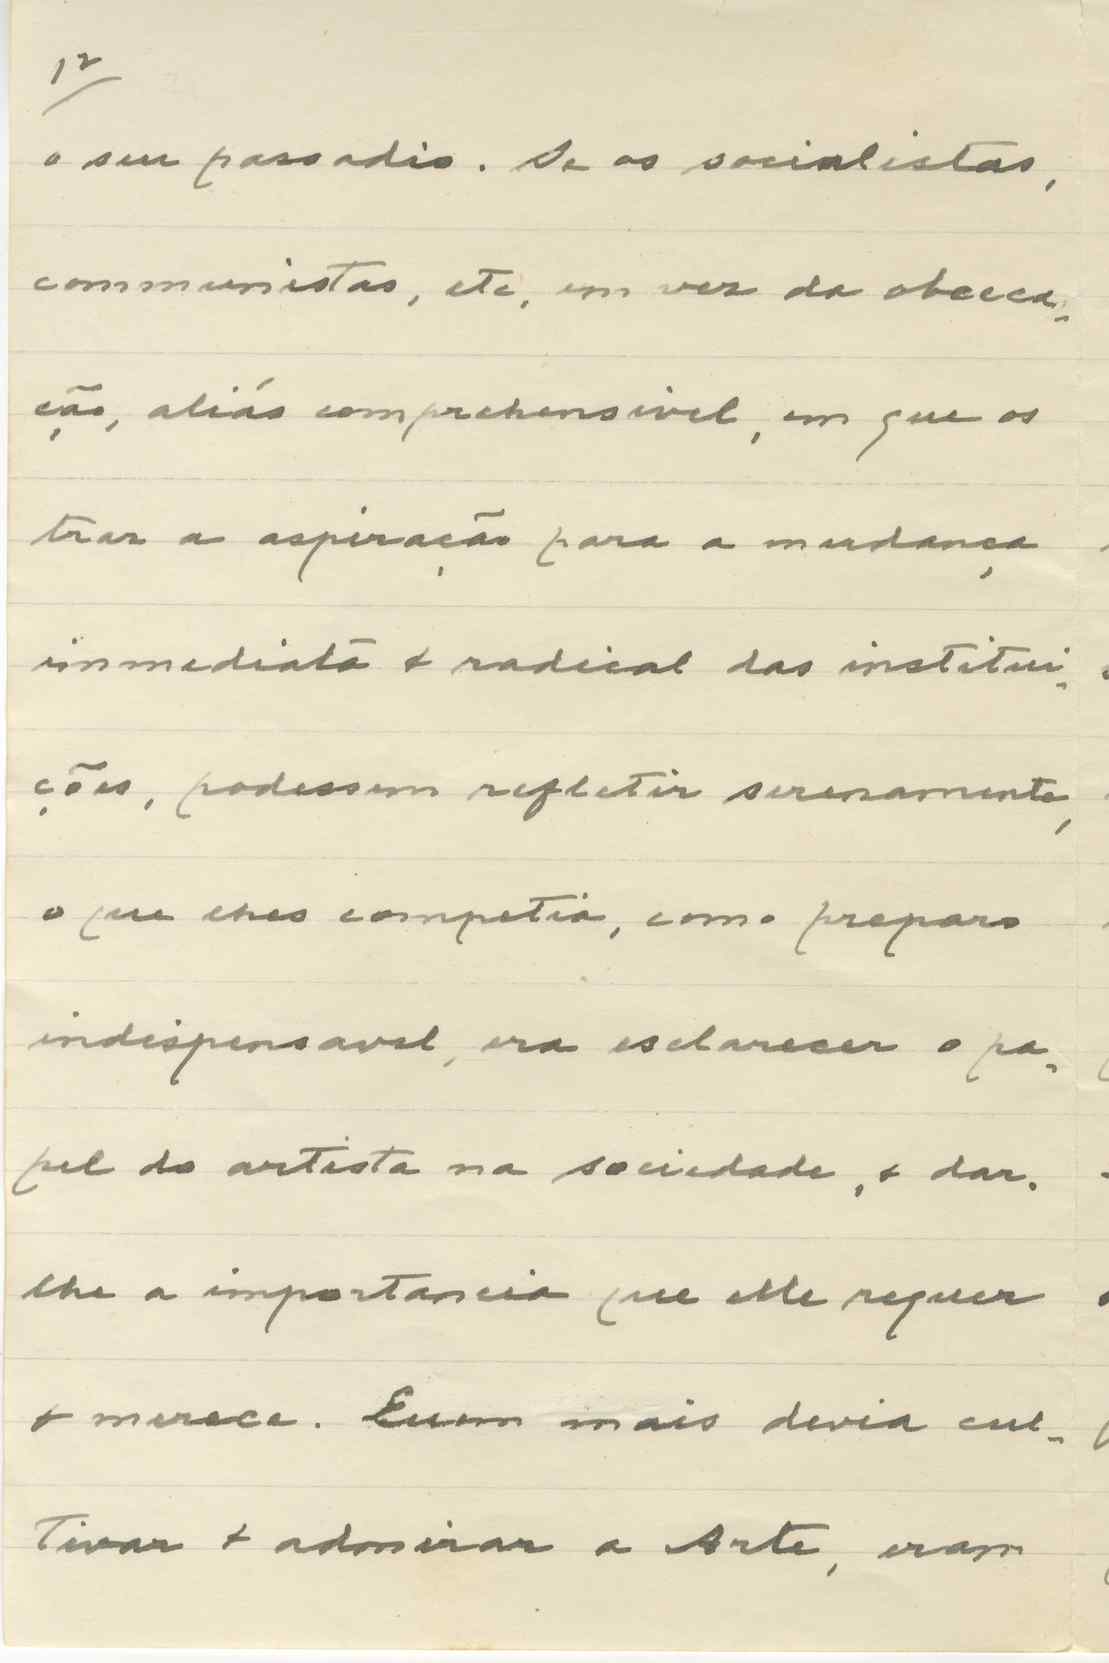 12
o seu passadio. Se os socialistas,
communistas, etc, em vez da obceca-
ção, aliás comprehensivel, em que os
traz a aspiração para a mudança
immediata & radical das institui-
ções, podessem refletir serenamente,
o que lhes competia, como preparo
indispensavel, era esclarecer o pa-
pel do artista na sociedade, & dar-
lhe a importancia que elle requer
& merece. Quem mais devia cul-
tivar & admirar a Arte, eram